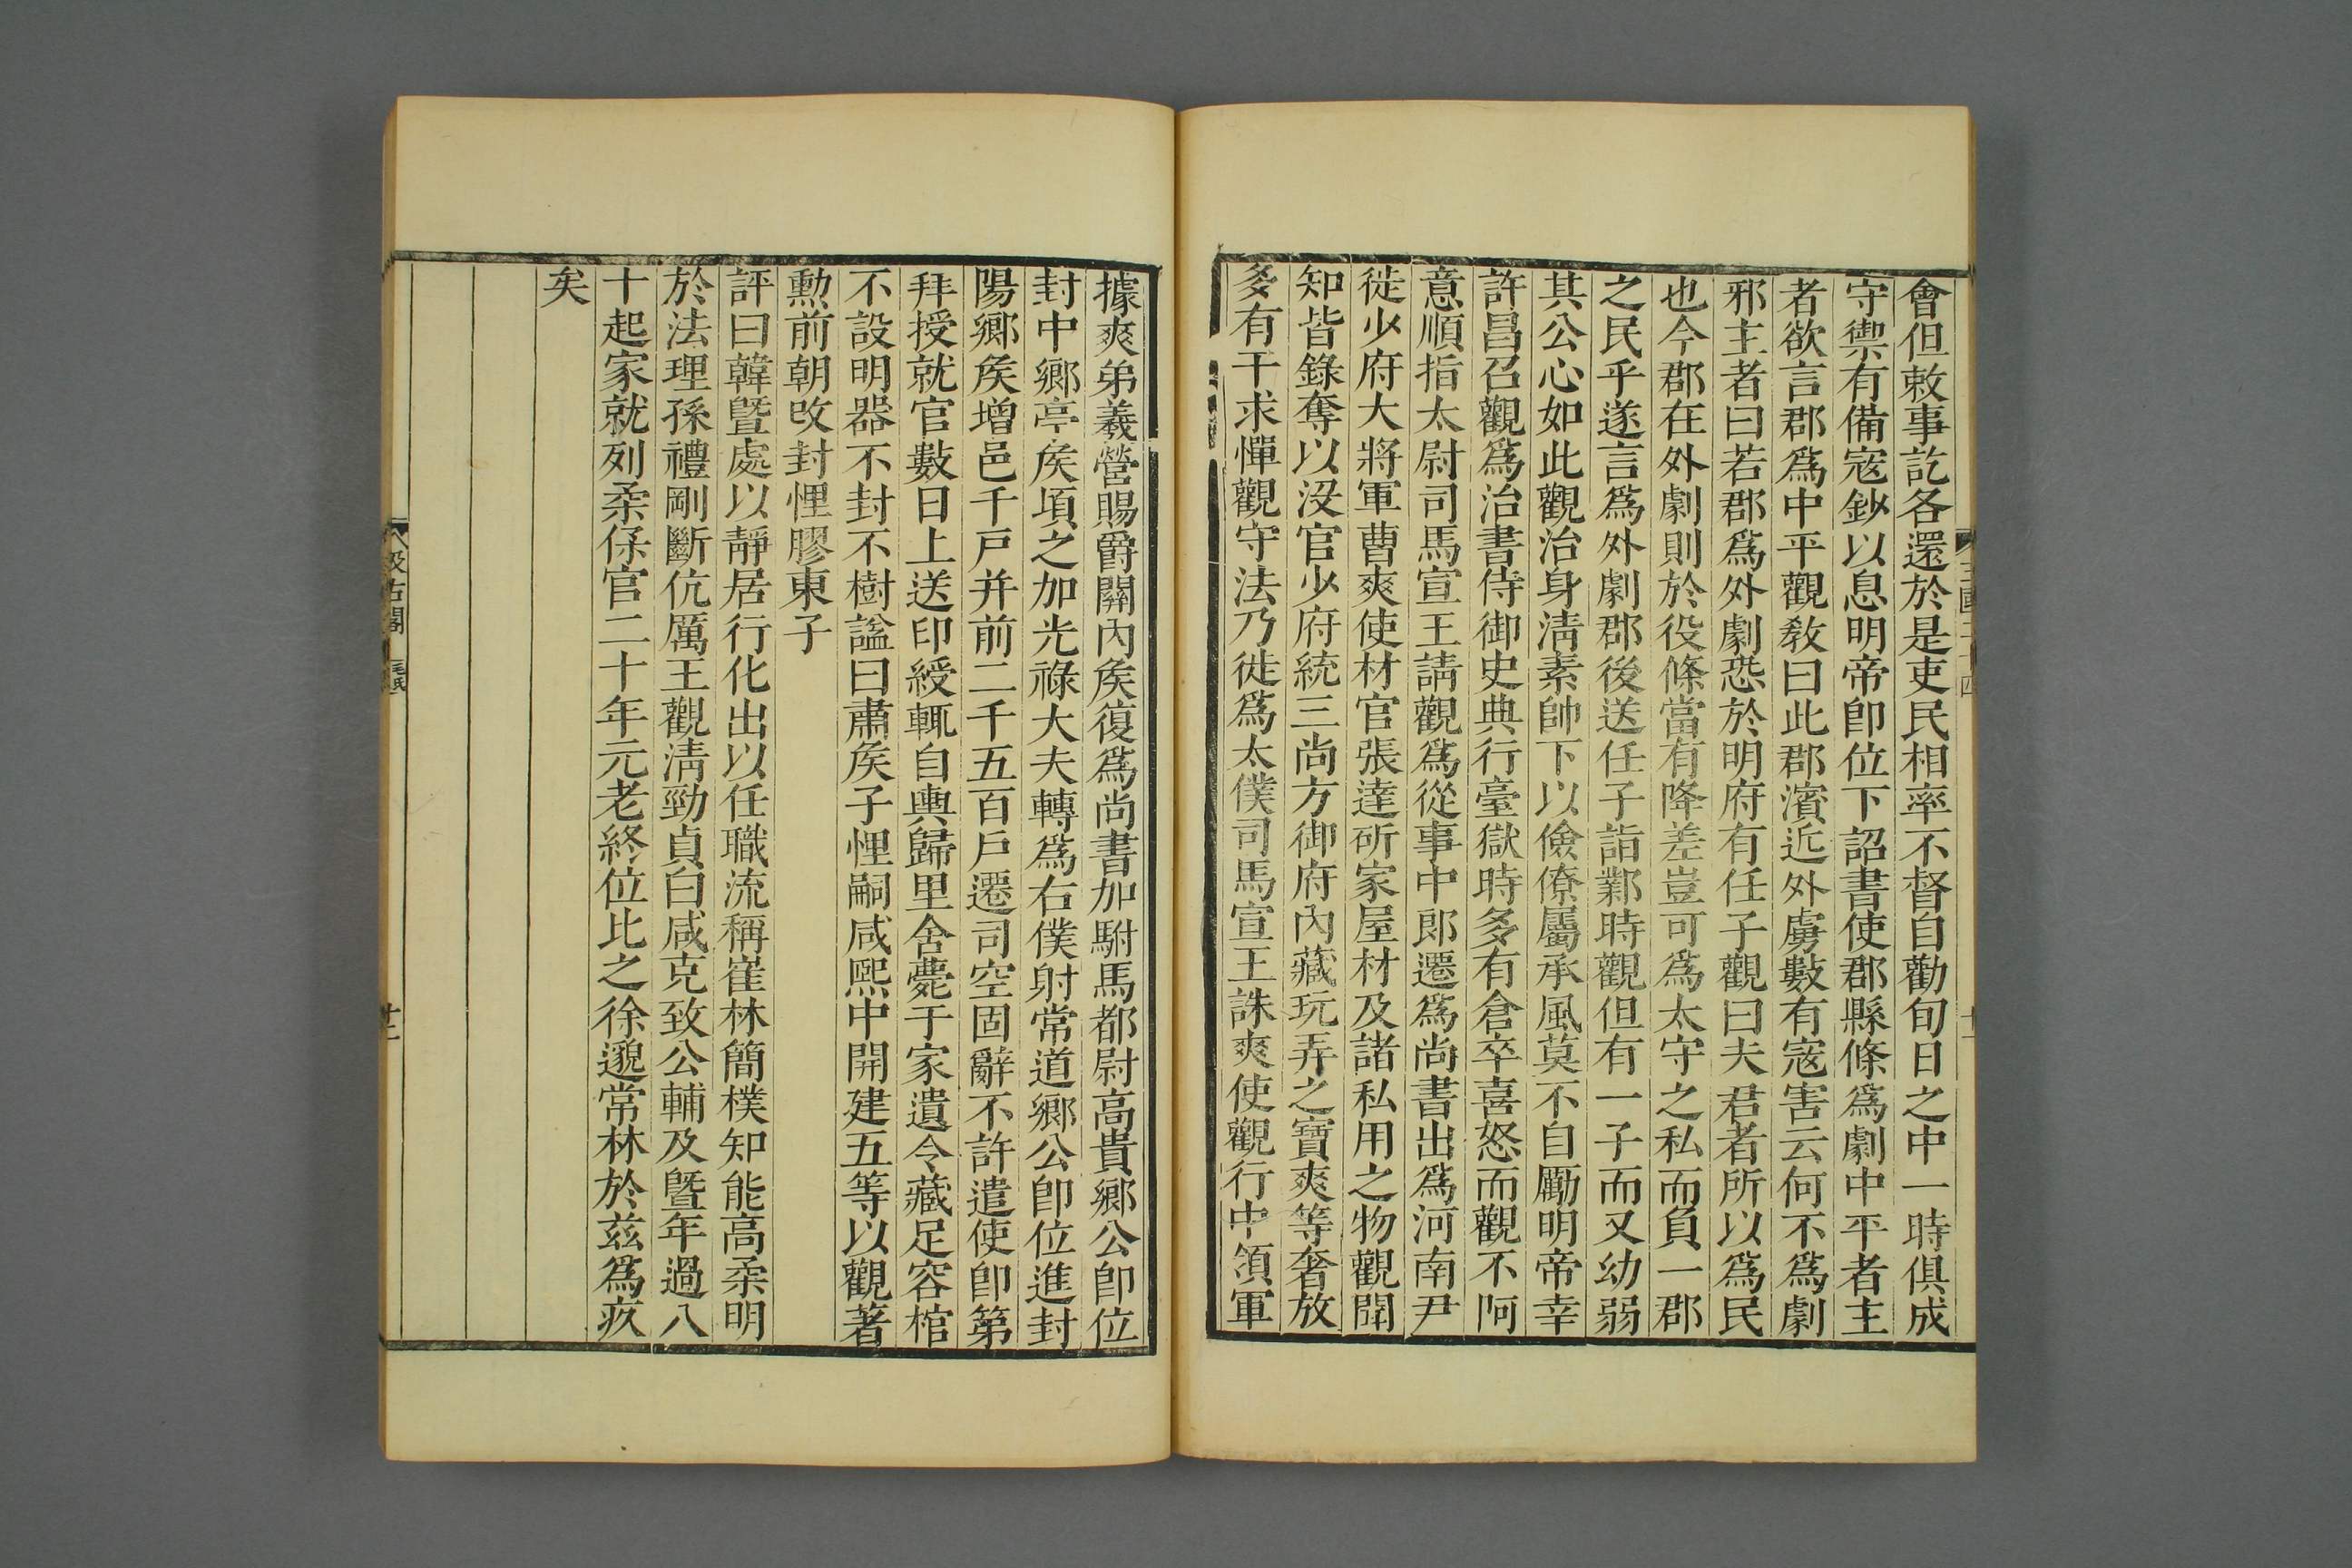 會但敕事訖各還於是吏民相率不督自勸旬日之中一時俱成
守禦有備寇鈔以息明帝卽位下詔書使郡縣條爲劇中平者主
者欲言郡爲中平觀敎曰此郡濱近外虜數有寇害云何不爲劇
邪主者曰若郡爲外劇恐於明府有任子觀曰夫君者所以爲民
也今郡在外劇則於役條當有降差豈可爲太守之私而負一郡
之民乎遂言爲外劇郡後送任子詣鄴時觀但有一子而又幼弱
其公心如此觀治身淸素帥下以儉僚屬承風莫不自勵明帝幸
許昌召觀爲治書侍御史典行臺獄時多有倉卒喜怒而觀不阿
意順指太尉司馬宣王請觀爲從事中郎遷爲尚書出爲河南尹
徙少府大將軍曹爽使材官張達斫家屋材及諸私用之物觀聞
知皆錄奪以沒官少府統三尚方御府內藏玩弄之寶爽等奢放
多有干求憚觀守法乃徙爲太僕司馬宣王誅爽使觀行中領軍
據爽弟羲營賜爵關內矦復爲尚書加駙馬都尉高貴鄉公卽位
封中鄉亭矦頃之加光祿大夫轉爲右僕射常道鄉公卽位進封
陽鄉矦增邑千戸并前二千五百戸遷司空固辭不許遣使卽第
拜授就官數日上送印綬輒自輿歸里舍薨于家遺令藏足容棺
不設明器不封不樹諡曰肅矦子悝嗣咸熙中開建五等以觀著
勳前朝改封悝膠東子
評曰韓曁處以靜居行化出以任職流稱崔林簡樸知能高柔明
於法理孫禮剛斷伉厲王觀淸勁貞白咸克致公輔及曁年過八
十起家就列柔保官二十年元老終位比之徐邈常林於茲爲疚
矣
汲古閣
毛氏
十二